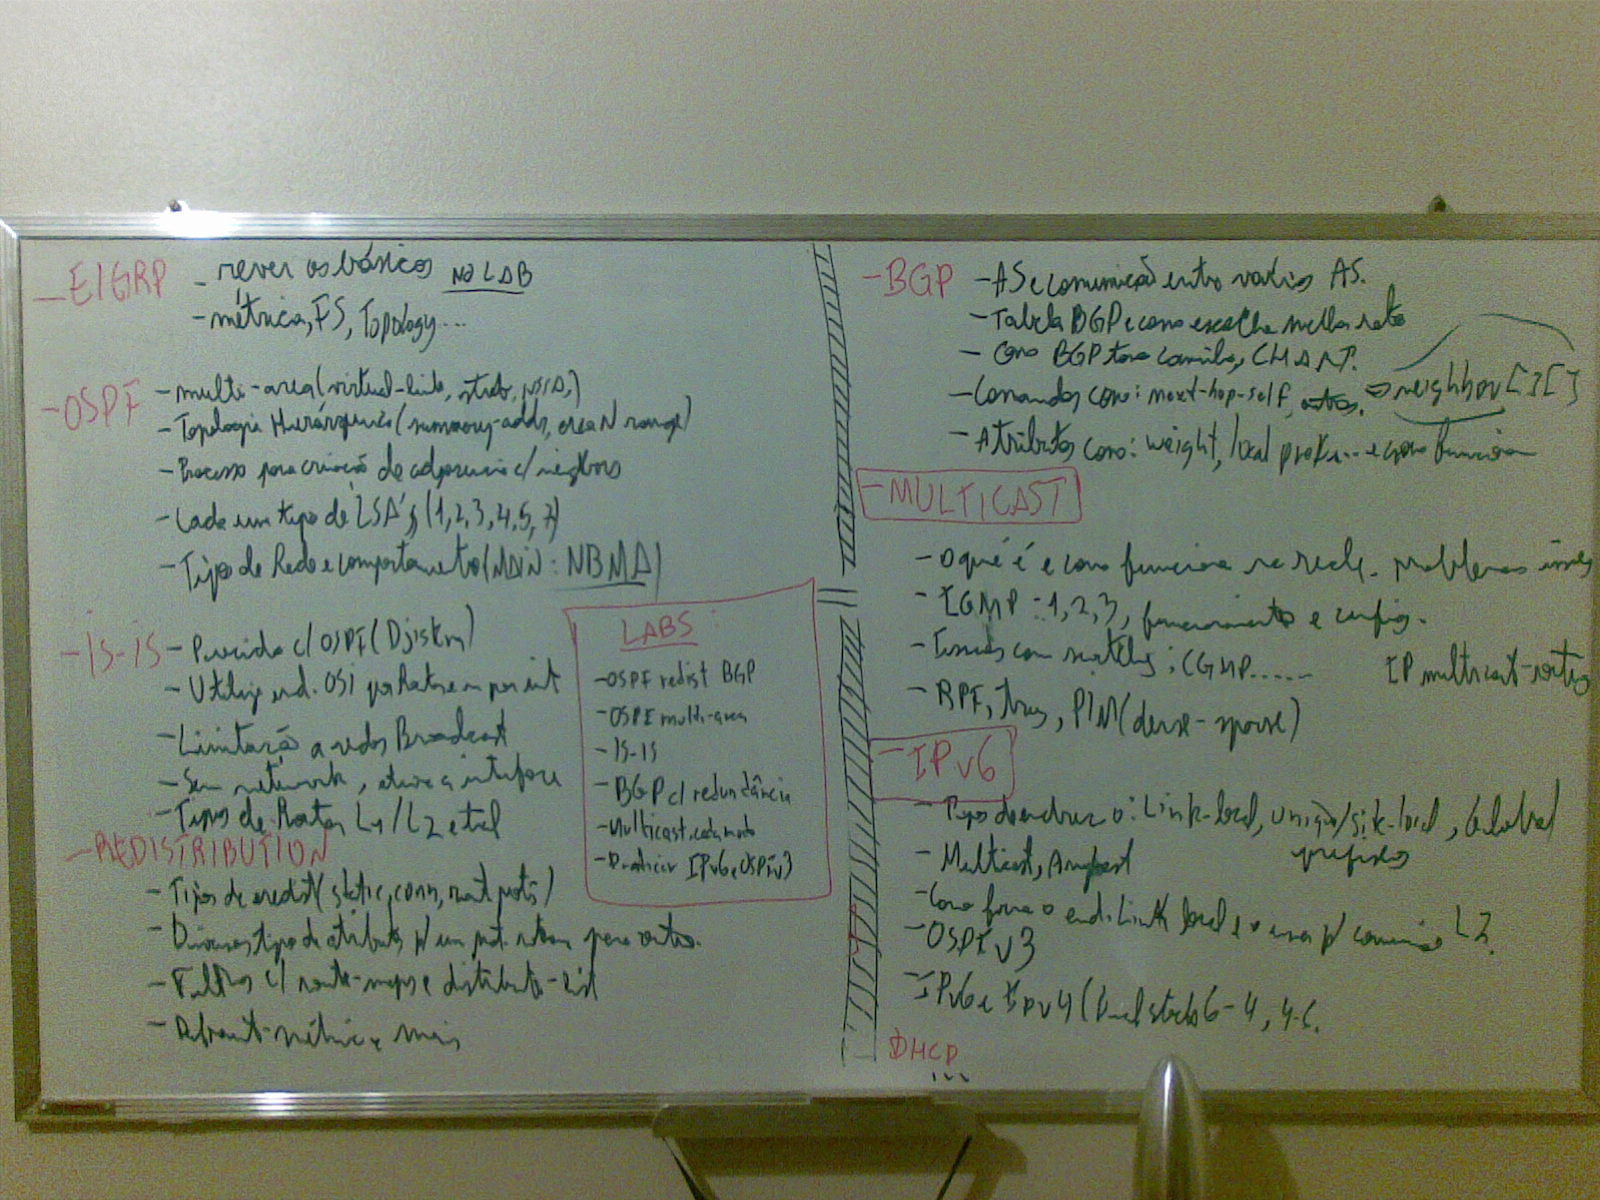 - EIGRP - rever os básicos no LAB
- métrica, FS, Topology...
- OSPF - multi-area (virtual-link, stub, NSSA,)
- Topologia Hierárquica (summary-adds, area N range)
- Processo para criação de adjacencia c/ neighbors
- Cada um tipo de LSA's (1,2,3,4,5,7)
- Tipo de Rede e comportamento (MAIN: NBMA)
- IS-IS - Parecido c/ OSPF (Djistra)
- Utiliza end. OSI
- Limitação a redes Broadcast
- Sem network, ativa a interface
- Tipos de Rotas L1/L2 e tal
- REDISTRIBUTION
- Tipos de redist (static, conn, rout prots)
- Diversos tipo de atributos p/ um prot. para outro.
- Filtros c/ route-maps e distribute-list
- Default-métric e mais
LABS:
- OSPF redist BGP
- OSPF multi-area
- IS-IS
- BGP c/ redundância
- Multicast, cada modo
- Praticar IPv6 e OSPFv3
- BGP - AS e comunicação entre varios AS.
- Tabela BGP e como escolhe melhor rota
- Como BGP toma caminho,
- Comandos como: next-hop-self, outros. => neighbor [ ] [ ]
- Atributos como: weight, local pref... e como funciona
- MULTICAST
- O que é e como funciona na rede. problemas
- IGMP: 1,2,3, funcionamento e config.
- com switches: CGMP.....
IP multicast-routing
- RPF, trees, PIM (dense-sparse)
- IPv6
- Tipos de : Link-local, site-local, Global
prefixos
- Multicast, Anycast
- Como forma o end. Link local e o usa p/ L2.
- OSPFv3
- IPv6 e IPv4 (Dual stack 6-4, 4-6.
DHCP
...